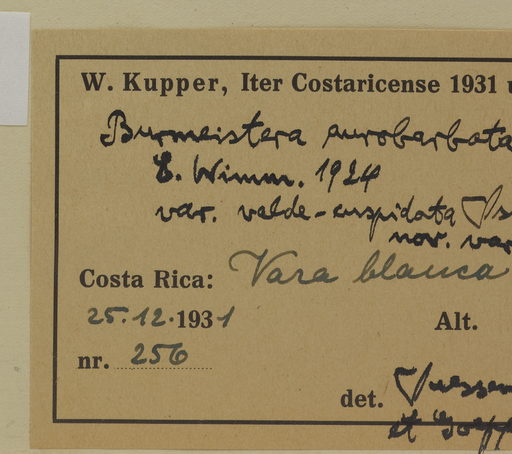 W. Kupper, Iter Costaricense 1931 u
Burmeistera aurobarbata
E. Wimm. 1924
var. valde-cuspidata
nov. var
Costa Rica: Vara blanca
25.12.1931 Alt.
nr. 256
det.
et